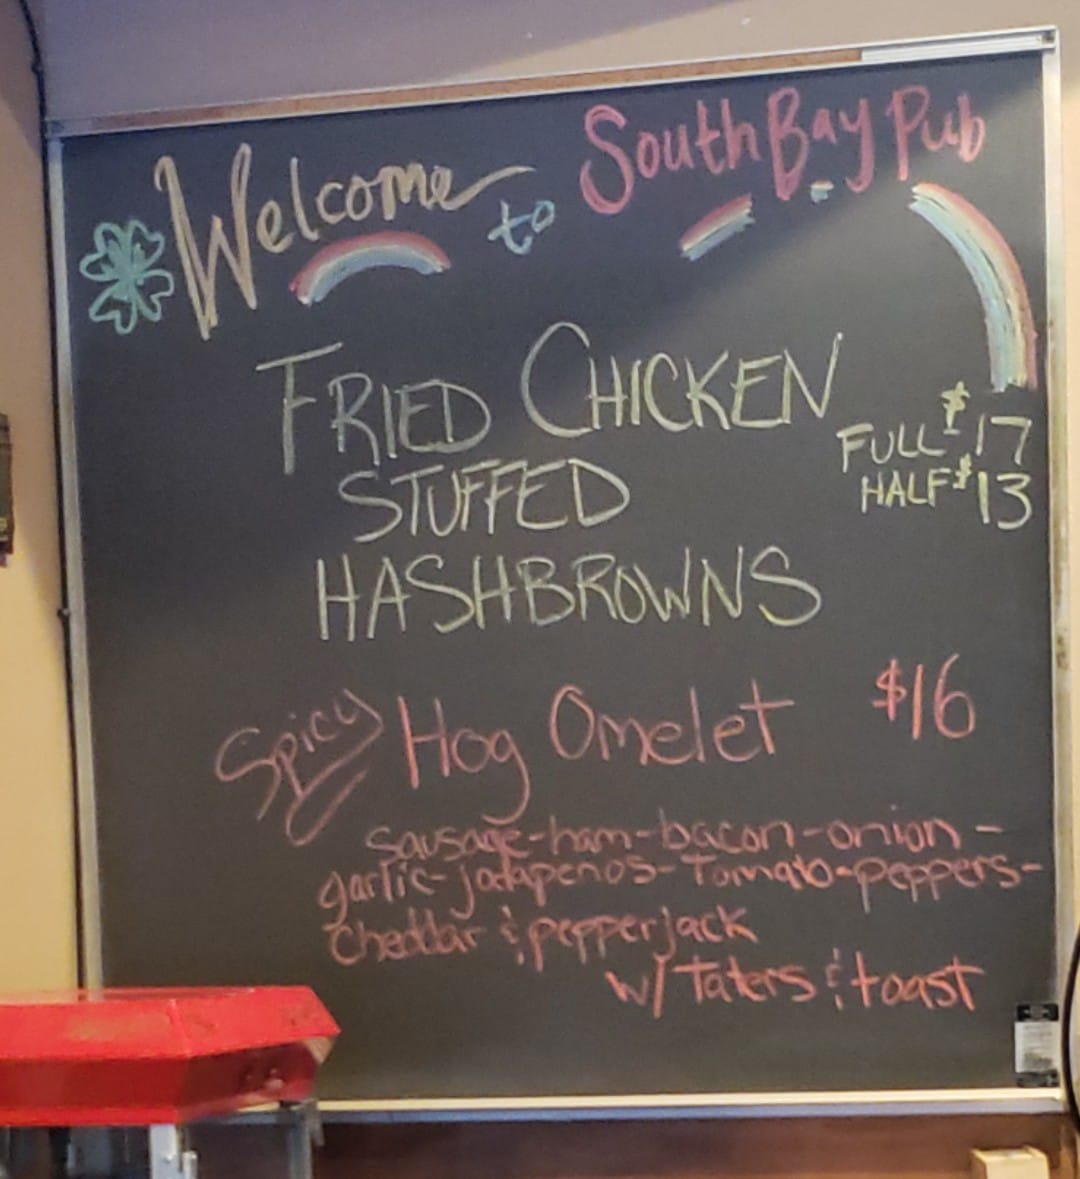 Welcome to South Bay Pub
FRIED CHICKEN
STUFFED
HASHBROWNS
FULL $17
HALF $13
Spicy Hog Omelet $16
sausage-ham-bacon-onion-
garlic-jalapenos-Tomato-peppers-
Cheddar & pepperjack
w/ Taters & toast